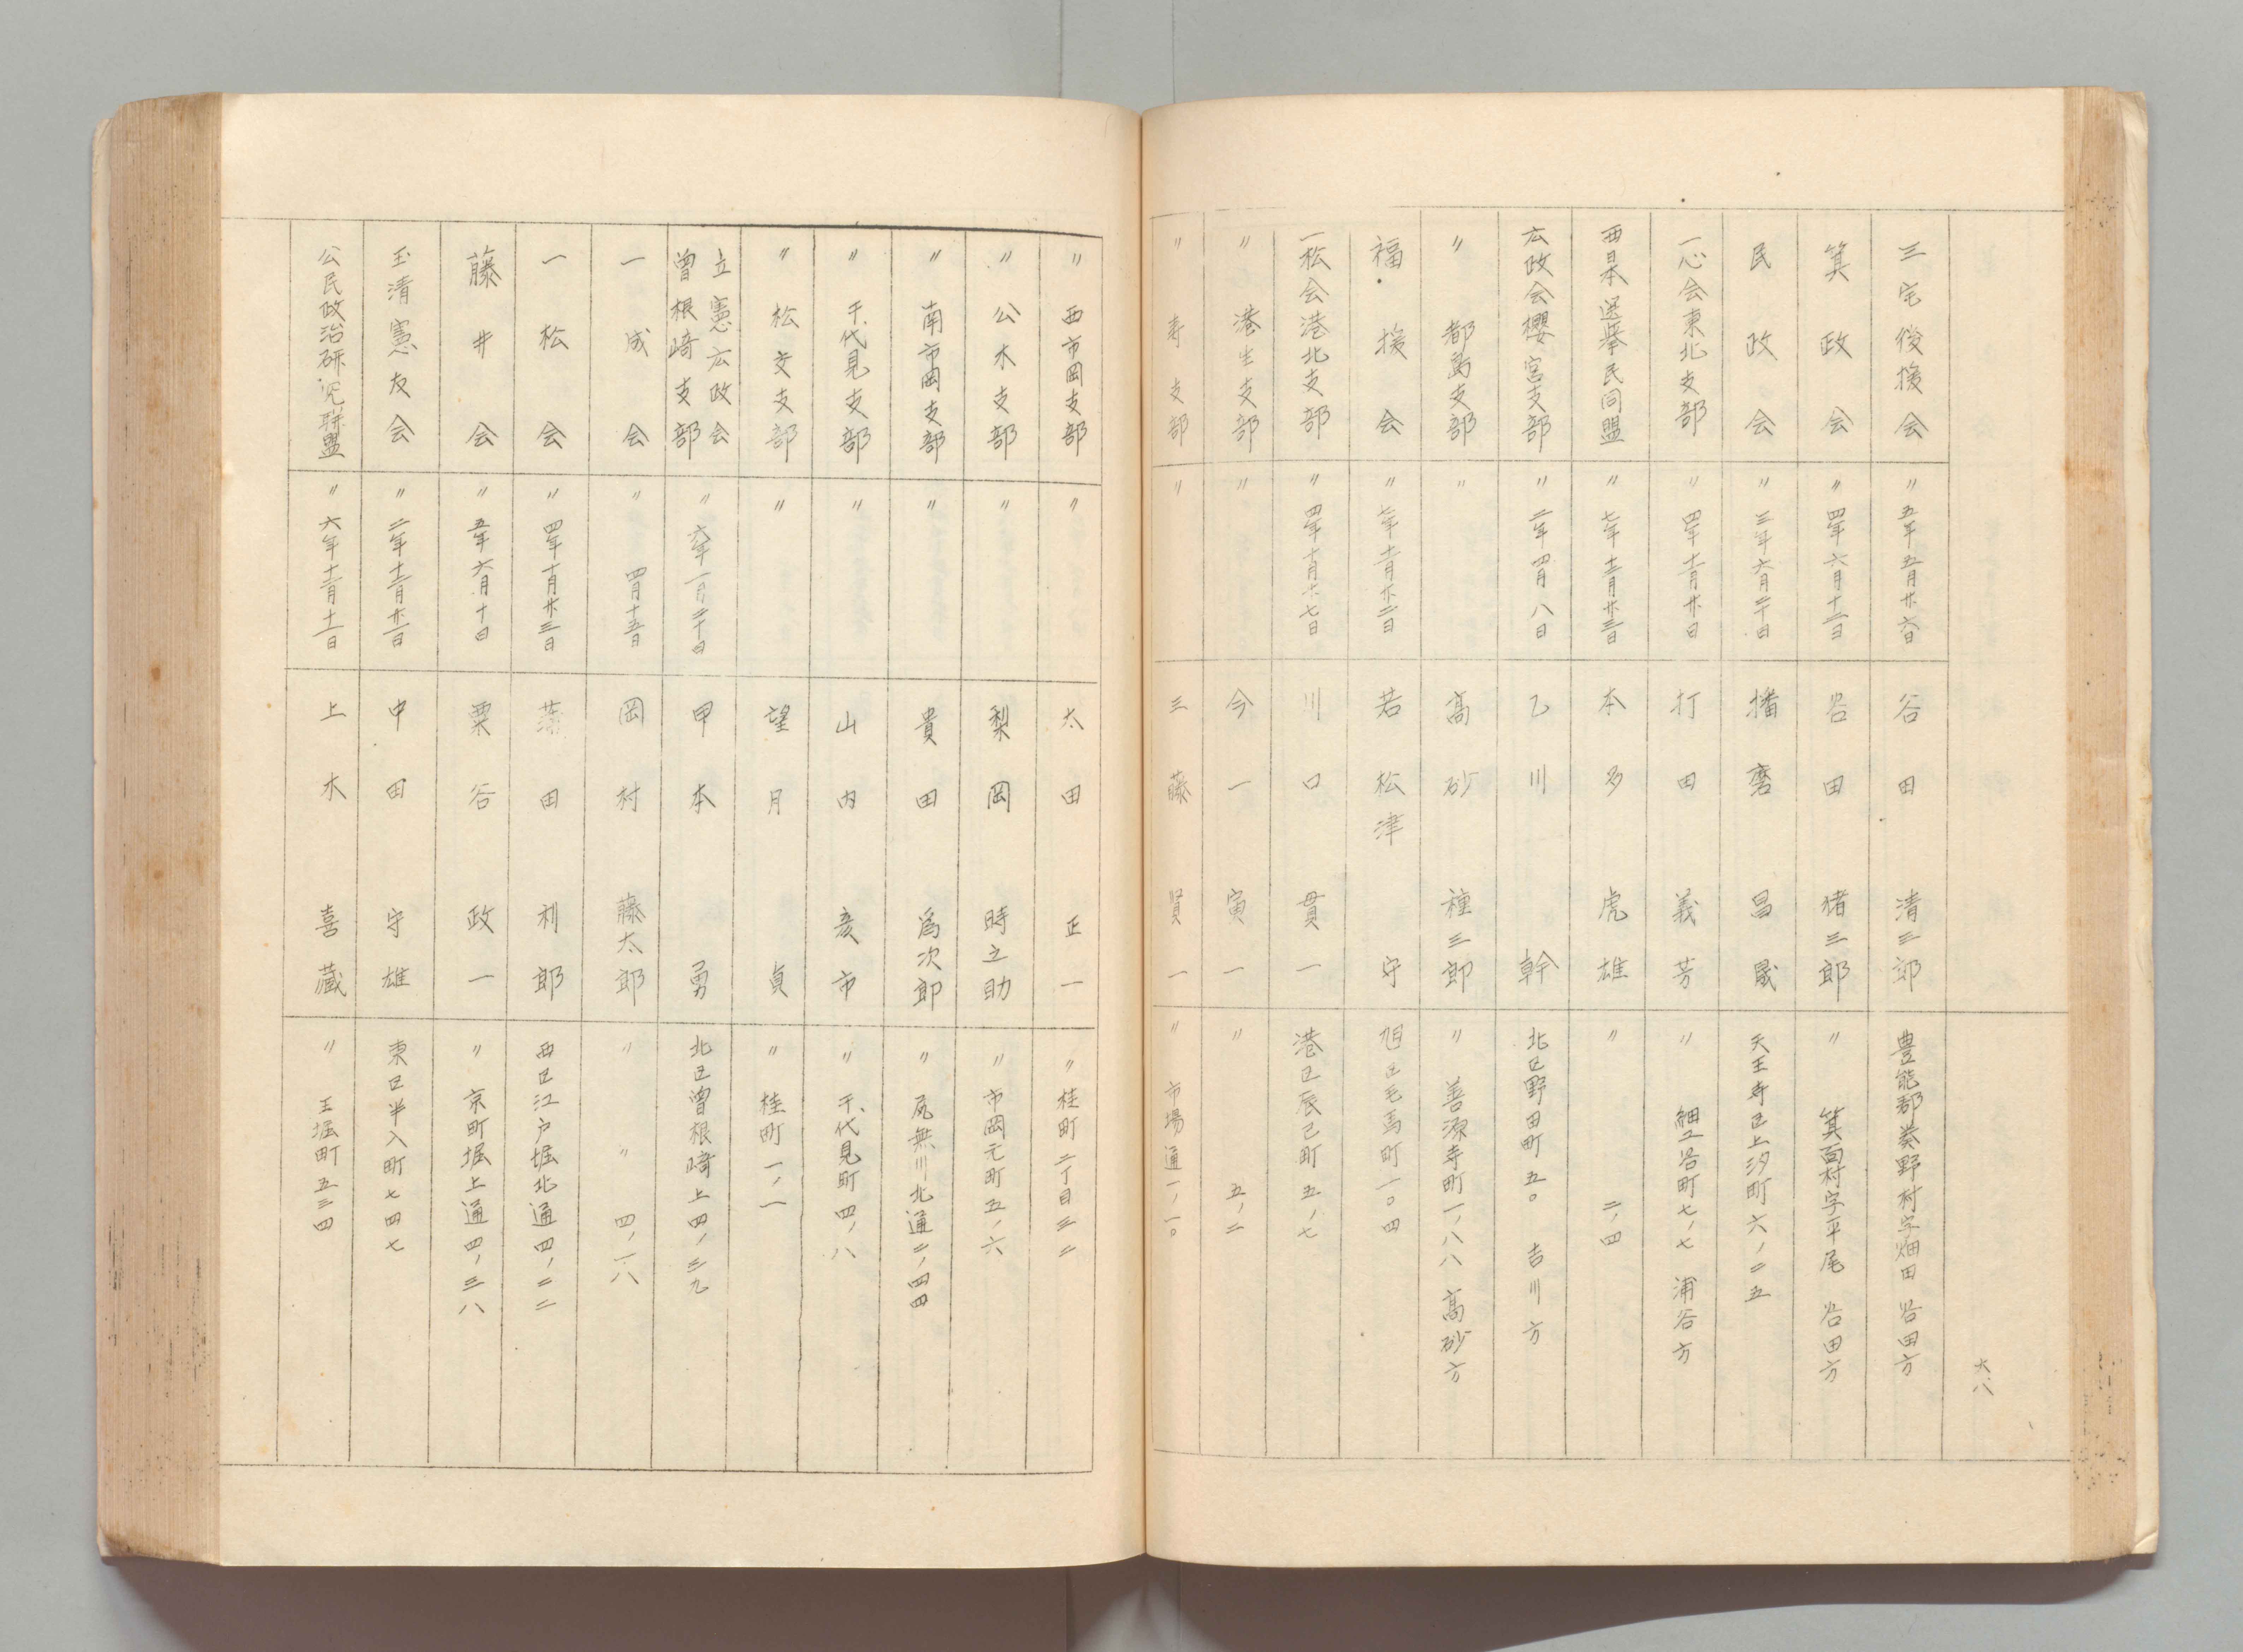 三宅後援会 〃五年五月廿六日 谷田清三郎 豊能郡萱野村字畑田 谷田方
箕政会 〃四年六月十二日 谷田猪三郎 〃箕面村字平尾 谷田方
民政会 〃三年六月二十日 播磨昌晟 天王寺区上汐町六ノ二五
一心会東北支部 〃四年十二月廿日 打田義芳 〃細工谷町七ノ七 浦谷方
西日本選挙民同盟 〃七年十二月廿三日 本多虎雄 〃二ノ四
広政会櫻宮支部 〃二年四月八日 乙川幹 北区野田町五〇 吉川方
〃都島支部 〃 高砂種三郎 〃善源寺町一ノ八八 高砂方
福援会 〃七年十二月廿二日 若松津守 旭区毛馬町一〇四
一松会港北支部 〃四年十月廿七日 川口貫一 港区辰巳町五ノ七
〃港生支部 〃 今一寅一 〃五ノ二
〃寿支部 〃 三藤賢一 〃市場通一ノ一〇
六八
〃西市岡支部 〃 太田正一 〃桂町二丁目三二
〃公木支部 〃 梨岡時之助 〃市岡元町五ノ六
〃南市岡支部 〃 貴田為次郎 〃尻無川北通二ノ四四
〃千代見支部 〃 山内亥市 〃千代見町四ノ八
〃松交支部 〃 望月貞 〃桂町一ノ一
立憲広政会曽根崎支部 〃六年一月二十日 甲本勇 北区曽根崎上四ノ三九
一成会 〃四月十五日 岡村藤太郎 〃〃四ノ一八
一松会 〃四年十月廿三日 田利郎 西区江戸堀北通四ノ二二
藤井会 〃五年六月十日 粟谷政一 〃京町堀上通四ノ三八
玉清憲友会 〃二年十二月廿一日 中田守雄 東区半入町七四七
公民政治研究聯盟 〃六年十二月十一日 上木喜蔵 〃玉堀町五三四